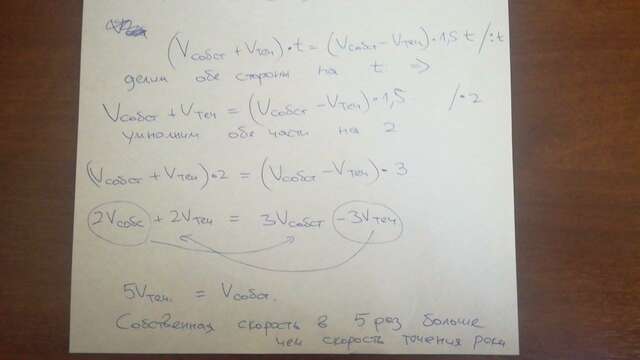 (Vсобст + Vтеч)·t = (Vсобст - Vтеч)·1,5 t /:t
делим обе стороны на t =>
Vсобст + Vтеч = (Vсобст - Vтеч)·1,5 /·2
умножим обе части на 2
(Vсобст + Vтеч)·2 = (Vсобст - Vтеч)·3
2Vсобс + 2Vтеч = 3Vсобст - 3Vтеч
5Vтеч. = Vсобст.
Собственная скорость в 5 раз больше
чем скорость течения реки